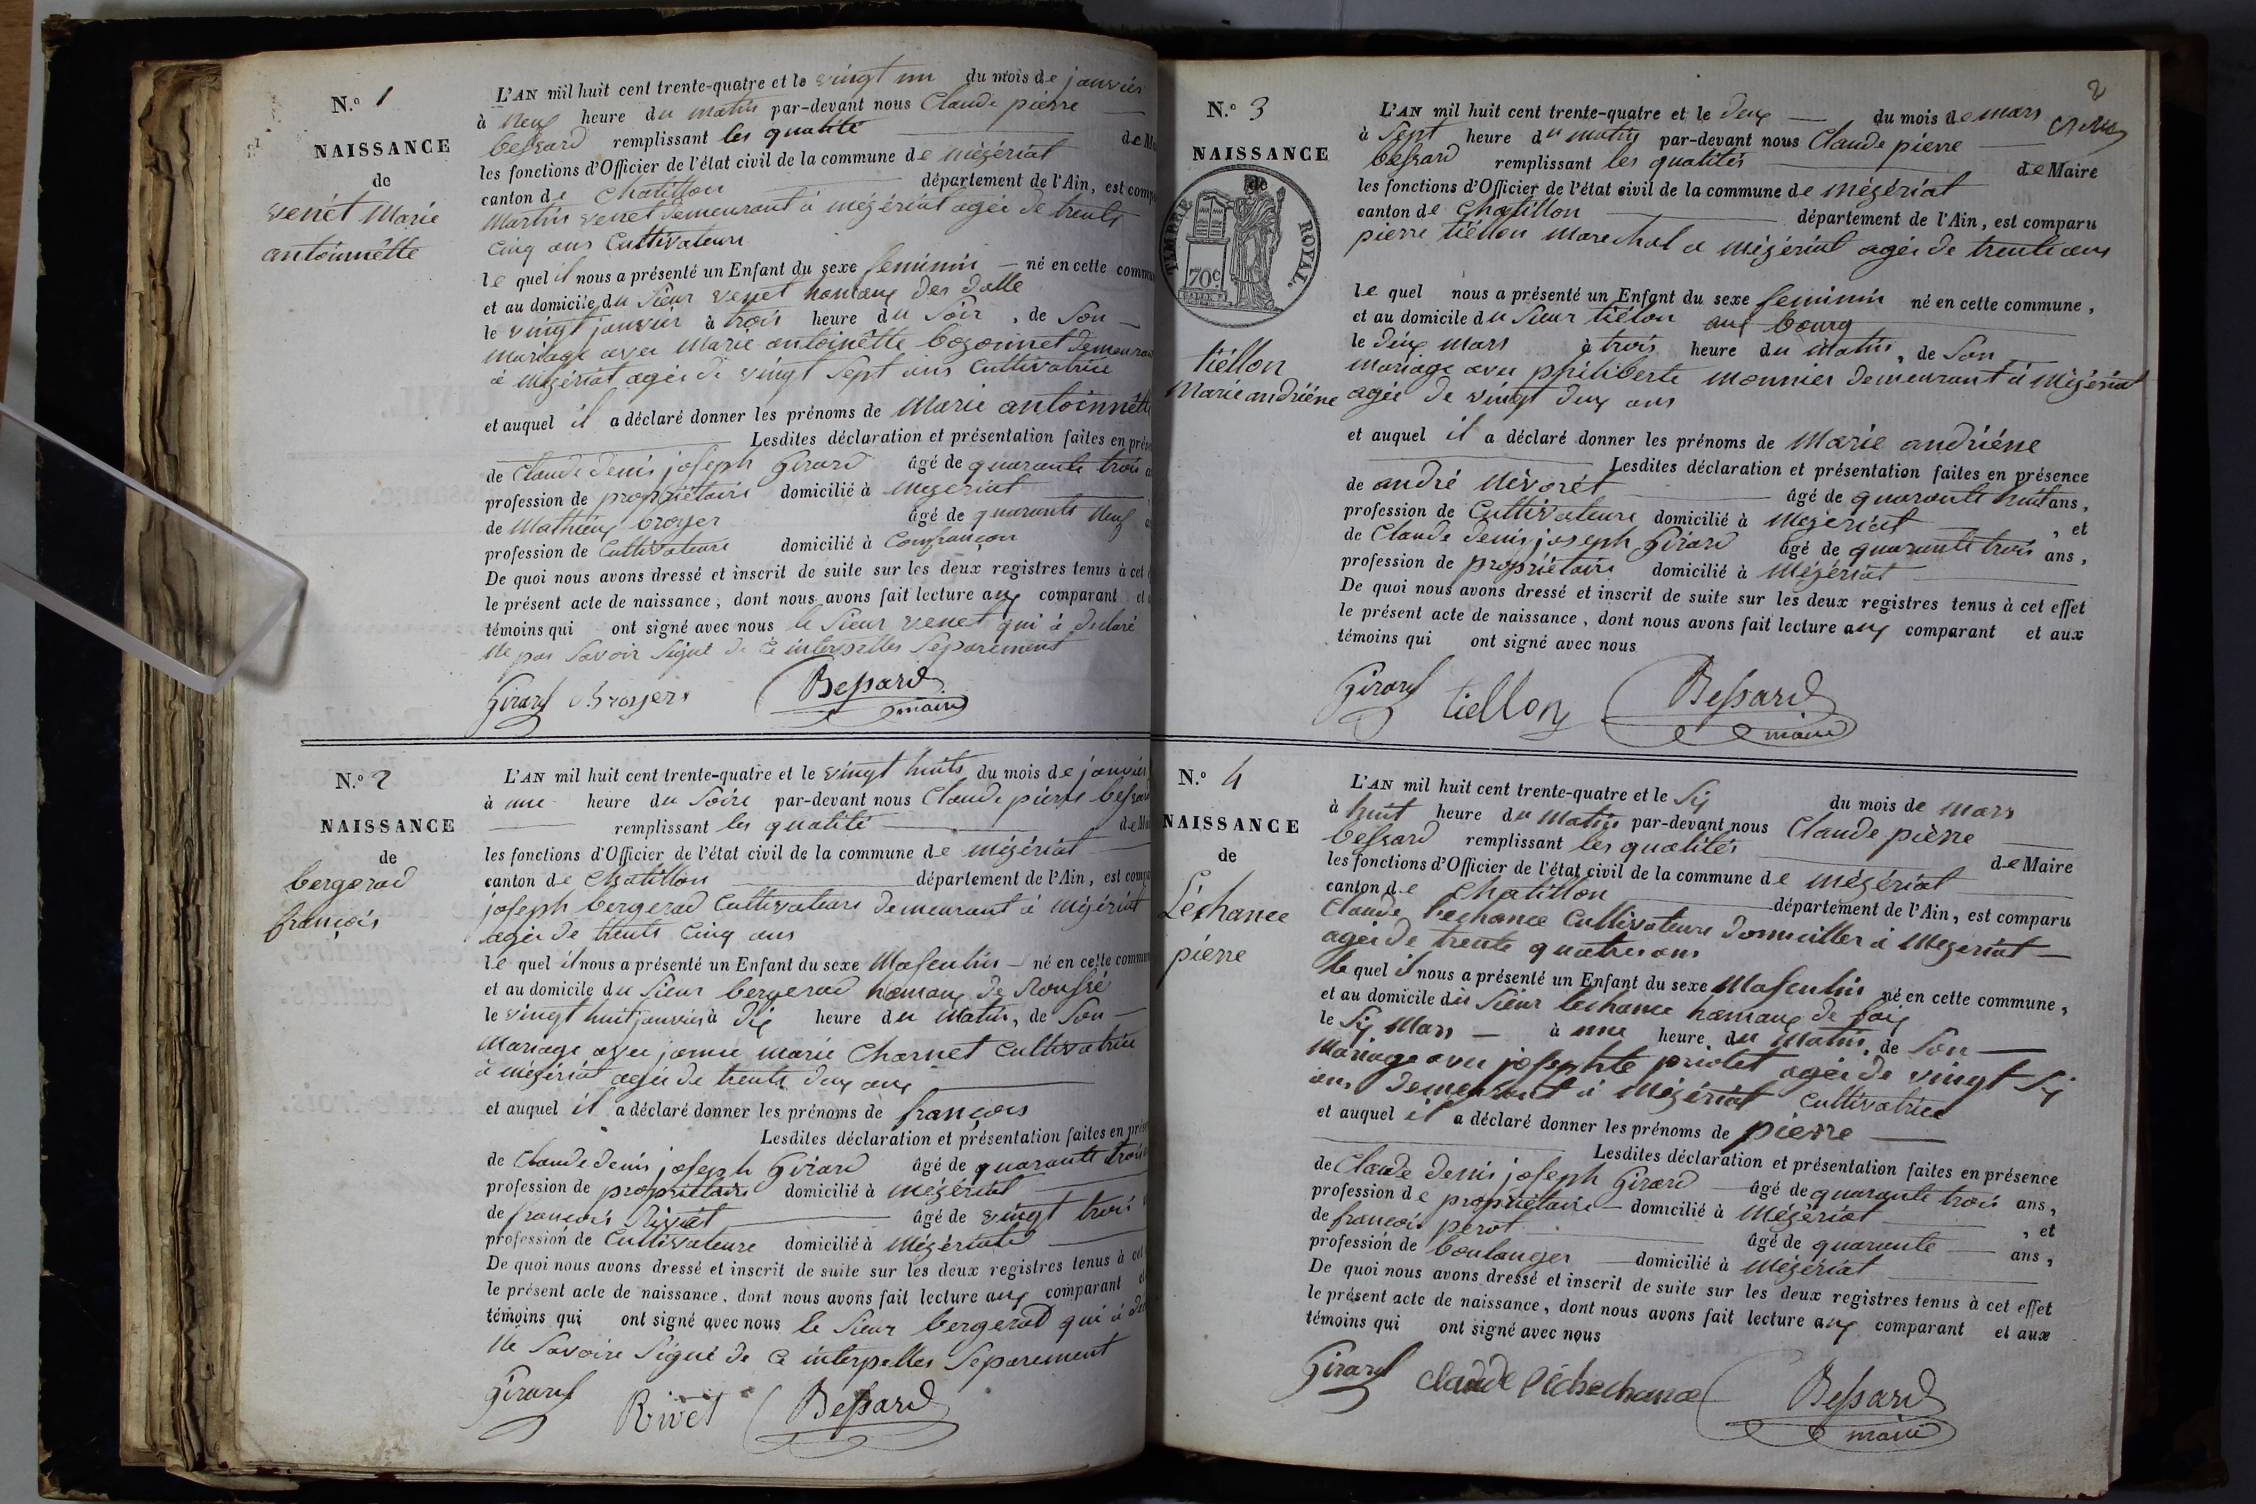 N.o 1
NAISSANCE
de
venét Marie
antoinnètte
L'AN mil huit cent trente-quatre et le vingt un du mois de janvier
à neuf heure du matin par-devant nous Claude pierre
bessard remplissant les qualité de M
les fonctions d'Officier de l'état civil de la commune de mézériat
canton de Chatillon département de l'Ain, est comp
Martin venet demeurant à mézériat agée de trente
cinq ans Cultivateur
le quel il nous a présenté un Enfant du sexe feminin né en cette commu
et au domicile du sieur venet hameaux des
le vingt janvier à trois heure du soir, de son
mariage avec Marie antoinètte bozonnet demeurant
à mézériat agée de vingt sept ans Cultivatrice
et auquel il a déclaré donner les prénoms de Marie antoinnètte
Lesdites déclaration et présentation faites en prés
de Claude denis joseph Girard âgé de quarante trois
profession de propriétaire domicilié à mezeriat
de Mathieu broyer âgé de quarante neuf
profession de Cultivateure domicilié à Confrançon
De quoi nous avons dressé et inscrit de suite sur les deux registres tenus à cet
le présent acte de naissance, dont nous avons fait lecture aux comparant et
témoins qui ont signé avec nous le sieur venet qui à declaré
ne pas savoir signé de ce interpelles separement
Girard Broyer Bessard
maire
N.o 2
NAISSANCE
de
bergerad
françois
L'AN mil huit cent trente-quatre et le vingt huits du mois de janvier
à une heure du soire par-devant nous Claude pierre bessard
remplissant les qualité de M
les fonctions d'Officier de l'état civil de la commune de mézériat
canton de Chatillon département de l'Ain, est comp
joseph bergerad Cultivateure demeurant à mézériat
agée de trente cinq ans
le quel il nous a présenté un Enfant du sexe Masculin né en cette commun
et au domicile du sieur bergerad hameaux de
le vingt huit janvier à dix heure du matin, de son
mariage avec marie Charnet Cultivatrice
à mézériat agée de trente deux ans
et auquel il a déclaré donner les prénoms de françois
Lesdites déclaration et présentation faites en prés
de Claude denis joseph Girard âgé de quarante trois
profession de propriétaire domicilié à mézériat
de françois Rivét âgé de vingt trois
profession de Cultivateure domicilié à mézériat
De quoi nous avons dressé et inscrit de suite sur les deux registres tenus à cet
le présent acte de naissance, dont nous avons fait lecture aux comparant
témoins qui ont signé avec nous le sieur bergerad qui à
ne savoire signé de ce interpelles separement
Girard Rivet Bessard
2
N.o 3
NAISSANCE
de
TIMBRE ROYAL.
70c
tiéllon
Marie andriéne
L'AN mil huit cent trente-quatre et le deux du mois de mars
à sept heure du matin par-devant nous Claude pierre
bessard remplissant les qualités de Maire
les fonctions d'Officier de l'état civil de la commune de mézériat
canton de Chatillon département de l'Ain, est comparu
pierre tiéllon marechal a mézériat agée de trente ans
le quel nous a présenté un Enfant du sexe feminin né en cette commune,
et au domicile du sieur tiélon aux bourg
le deux mars à trois heure du matin, de son
mariage avec philiberte monnier demeurant à mézériat
agée de vingt deux ans
et auquel il a déclaré donner les prénoms de Marie andriéne
Lesdites déclaration et présentation faites en présence
de andré nivorét âgé de quarante huit ans,
profession de Cultivateure domicilié à mézériat, et
de Claude denis joseph Girard âgé de quarante trois ans,
profession de propriétaire domicilié à Mézériat
De quoi nous avons dressé et inscrit de suite sur les deux registres tenus à cet effet
le présent acte de naissance, dont nous avons fait lecture aux comparant et aux
témoins qui ont signé avec nous
Girard tiellon Bessard
maire
N.o 4
NAISSANCE
de
Léchance
pierre
L'AN mil huit cent trente-quatre et le six du mois de mars
à huit heure du matin par-devant nous Claude pièrre
bessard remplissant les qualités de Maire
les fonctions d'Officier de l'état civil de la commune de mézériat
canton de Chatillon département de l'Ain, est comparu
Claude lechance Cultivateure domiciller à Mezeriat
agée de trente quatre ans
le quel il nous a présenté un Enfant du sexe Masculin né en cette commune,
et au domicile du sieur lechance hameaux de
le six Mars à une heure du matin, de son
mariage avec josephte priolet agée de vingt six
ans demeurant à mézériat Cultivatrice
et auquel il a déclaré donner les prénoms de pierre
Lesdites déclaration et présentation faites en présence
de Claude denis joseph Girard âgé de quarante trois ans,
profession de propriétaire domicilié à Mézériat, et
de françois perot âgé de quarante ans,
profession de boulanger domicilié à Mézériat
De quoi nous avons dressé et inscrit de suite sur les deux registres tenus à cet effet
le présent acte de naissance, dont nous avons fait lecture aux comparant et aux
témoins qui ont signé avec nous
Girard claude Bessard
maire